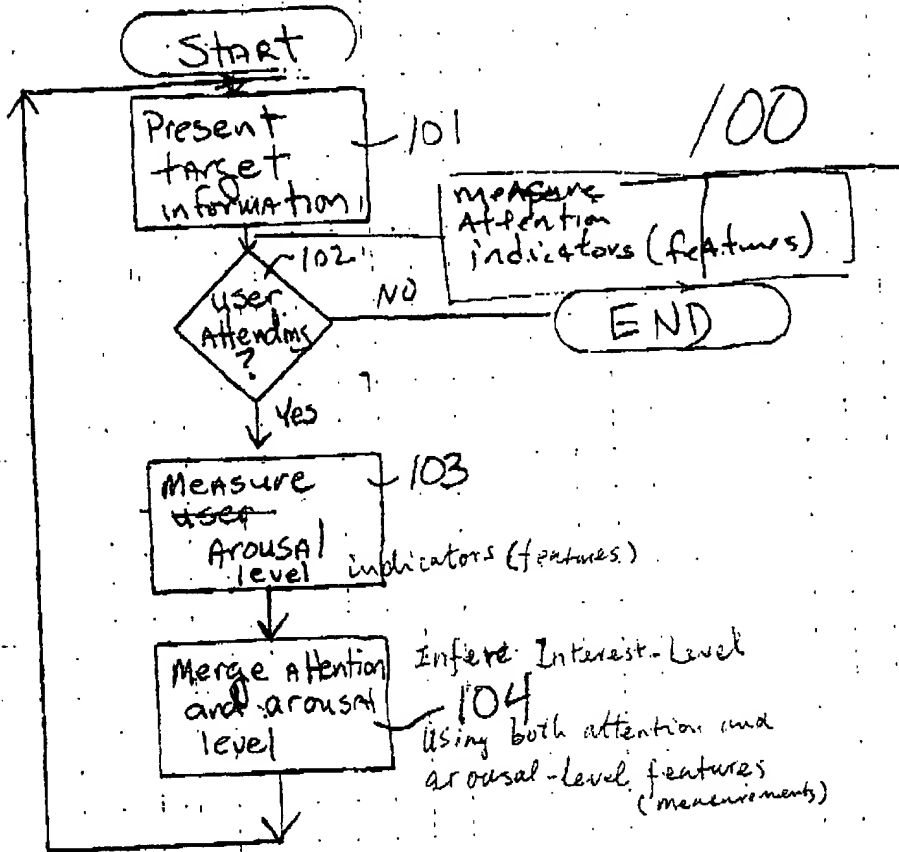 START
Present
target
information
101
100
measure
Attention
indicators (features)
102
user
Attending
?
NO
END
Yes
Measure
user
Arousal
level
indicators (features)
103
Merge Attention
and arousal
level
Infere Interest-Level
104
Using both attention and
arousal-level features
(measurements)